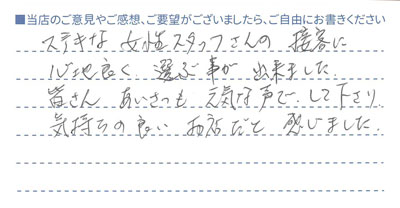 ■当店のご意見やご感想、ご要望がございましたら、ご自由にお書きください
ステキな 女性スタッフさんの 接客に
心地良く 選ぶ事が 出来ました.
皆さん あいさつも 元気な声で して下さり
気持ちの良い お店だと 感じました.